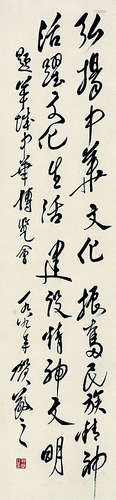 弘揚中華文化 振奮民族精神
活躍文化生活 建設精神文明
題羊城中華博覽會
一九八九年 賀敬之